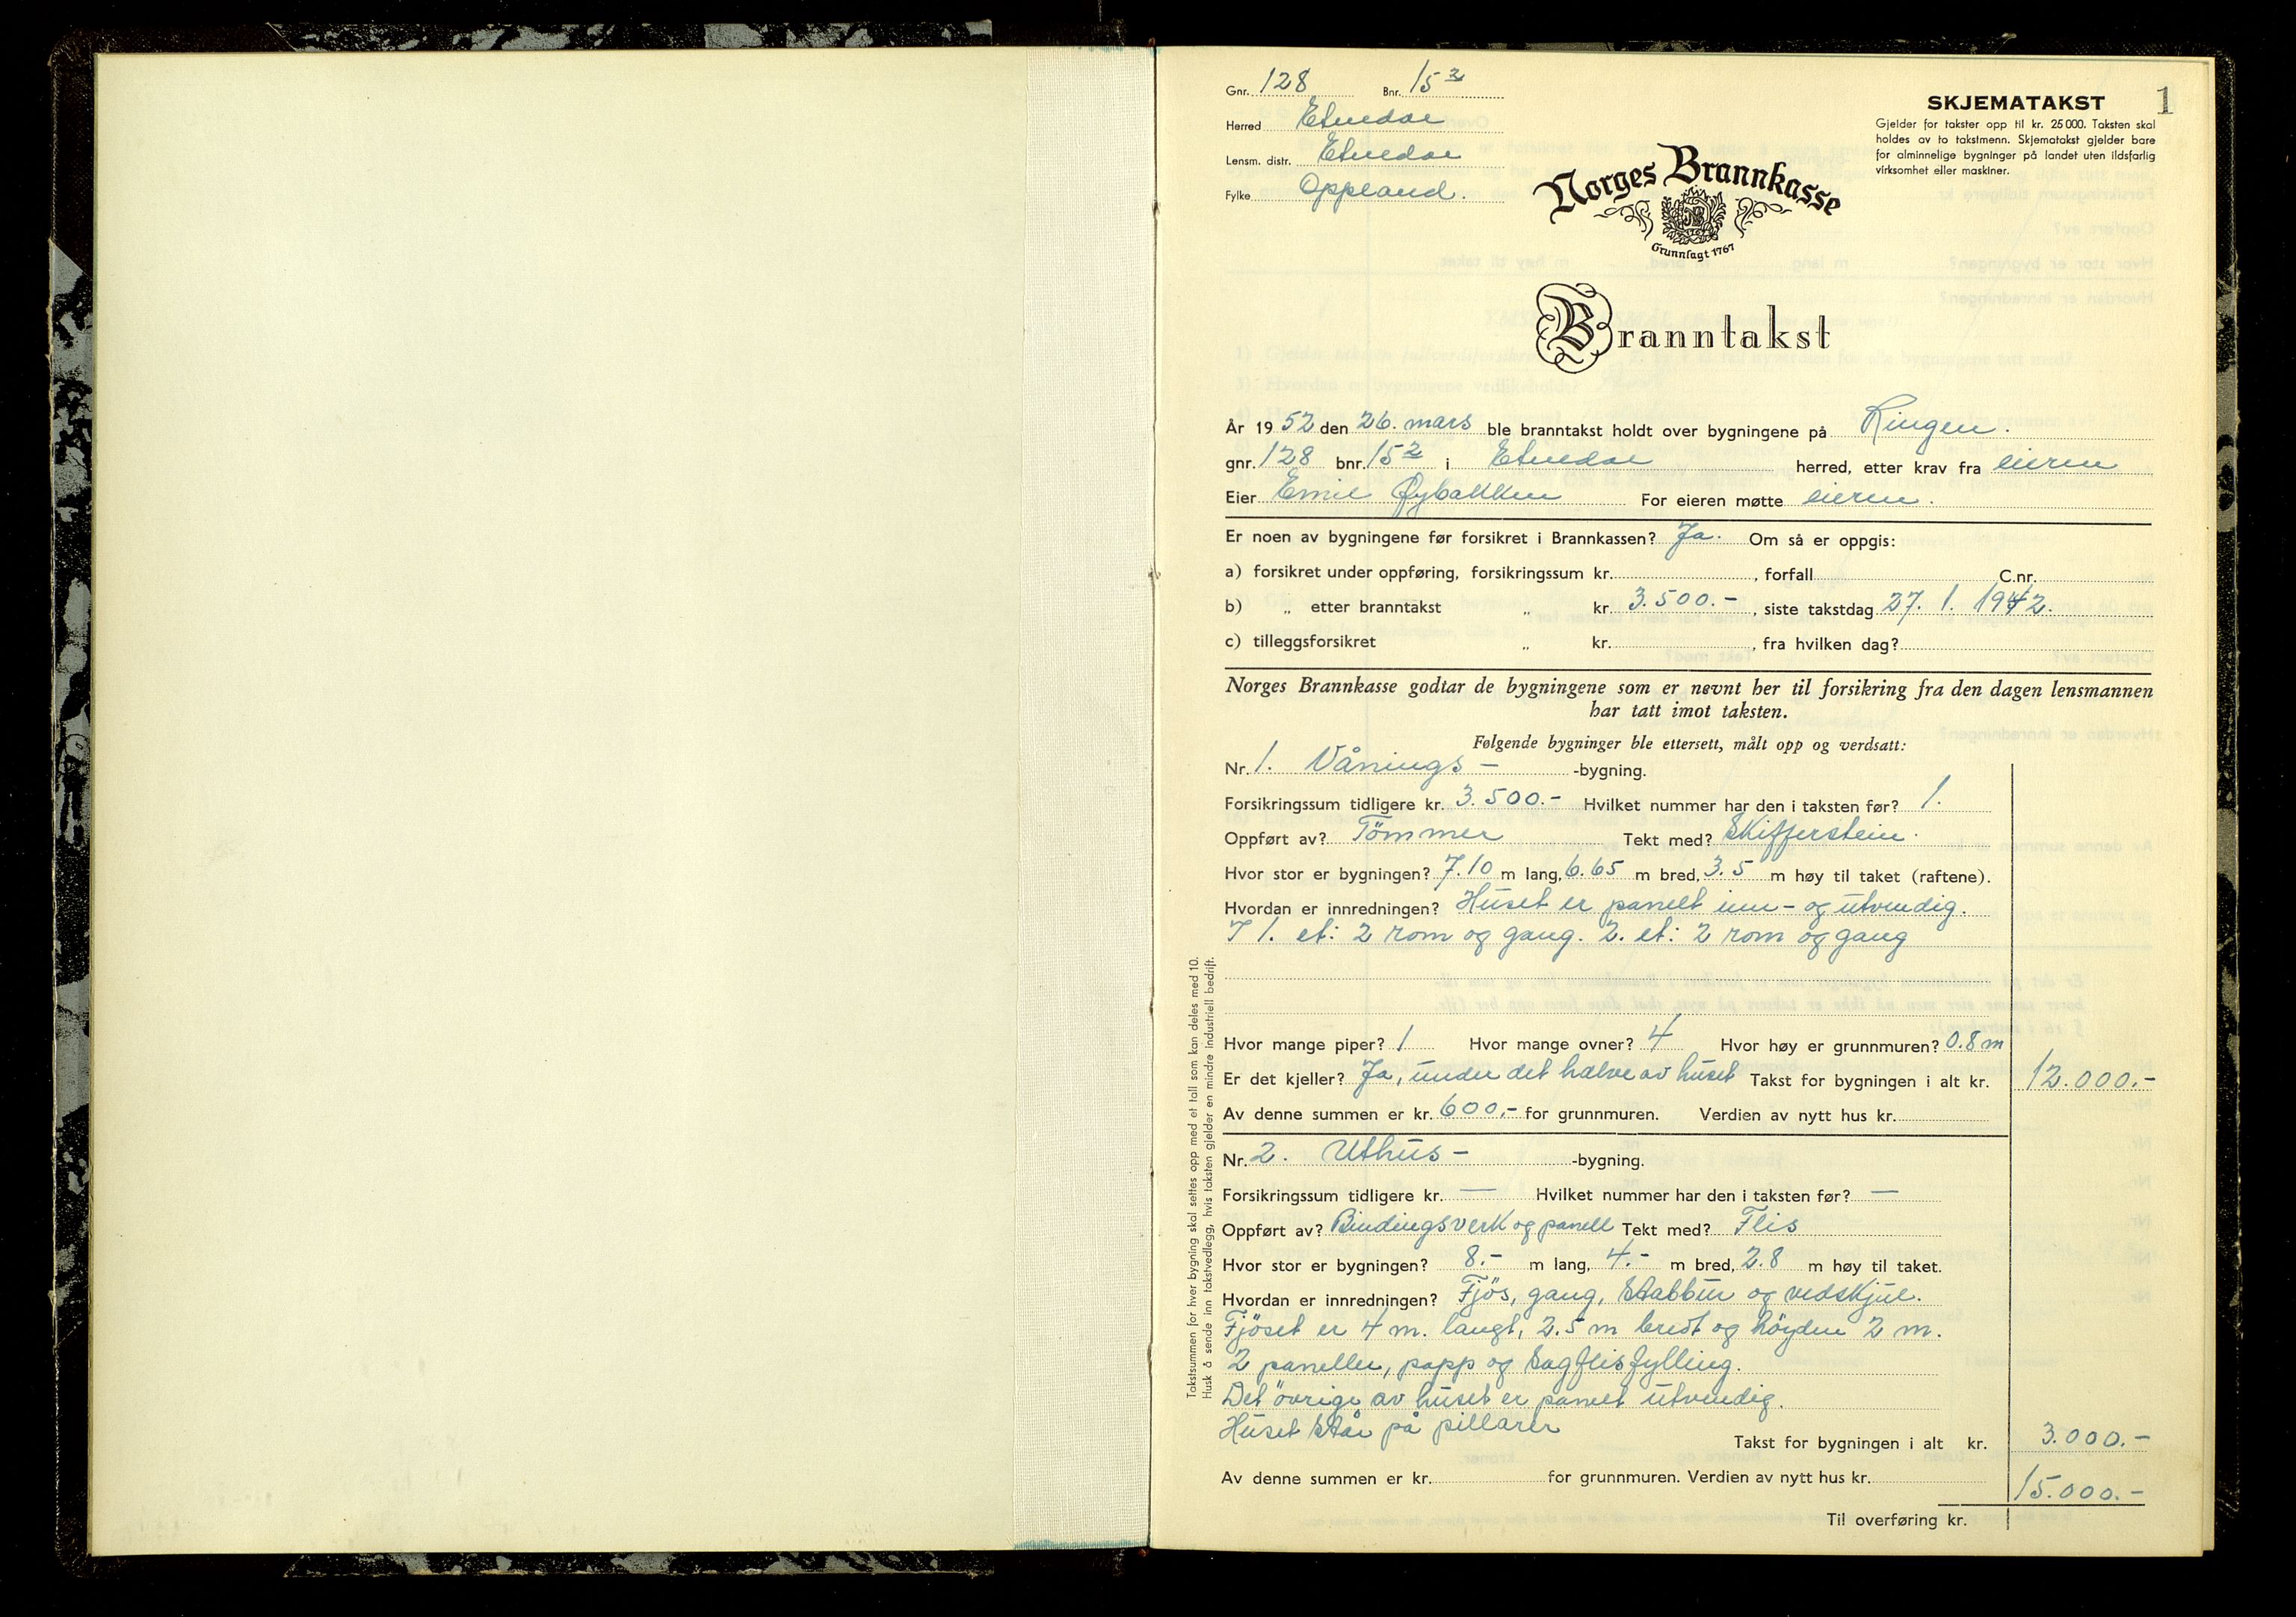 Gnr. 128 Bnr. 15²
Herred Etnedal
Lensm. distr. Etnedal
Fylke Oppland.
SKJEMATAKST 1
Gjelder for takster opp til kr. 25 000. Taksten skal
holdes av to takstmenn. Skjematakst gjelder bare
for alminnelige bygninger på landet uten ildsfarlig
virksomhet eller maskiner.
Norges Brannkasse
Grunnlagt 1767
Branntakst
År 1952 den 26. mars ble branntakst holdt over bygningene på Ringen.
gnr. 128 bnr. 15² i Etnedal herred, etter krav fra eieren
Eier Emil Øybakken For eieren møtte eieren.
Er noen av bygningene før forsikret i Brannkassen? Ja. Om så er oppgis:
a) forsikret under oppføring, forsikringssum kr. , forfall C.nr.
b) „ etter branntakst „ kr. 3.500.- , siste takstdag 27. 1. 1942.
c) tilleggsforsikret „ kr. , fra hvilken dag?
Norges Brannkasse godtar de bygningene som er nevnt her til forsikring fra den dagen lensmannen
har tatt imot taksten.
Følgende bygninger ble ettersett, målt opp og verdsatt:
Nr. 1. Vånings- -bygning.
Forsikringssum tidligere kr. 3.500.- Hvilket nummer har den i taksten før? 1.
Oppført av? Tömmer Tekt med? Skifferstein.
Hvor stor er bygningen? 7.10 m lang, 6.65 m bred, 3.5 m høy til taket (raftene).
Hvordan er innredningen? Huset er panelt inn- og utvendig.
I 1. et: 2 rom og gang. 2. et: 2 rom og gang
Hvor mange piper? 1 Hvor mange ovner? 4 Hvor høy er grunnmuren? 0.8 m
Er det kjeller? Ja, under det halve av huset Takst for bygningen i alt kr. 12.000.-
Av denne summen er kr. 600.- for grunnmuren. Verdien av nytt hus kr.
Nr. 2. Uthus- -bygning.
Forsikringssum tidligere kr. — Hvilket nummer har den i taksten før? —
Oppført av? Bindingsverk og panell Tekt med? Flis
Hvor stor er bygningen? 8.- m lang, 4.- m bred, 2.8 m høy til taket.
Hvordan er innredningen? Fjös, gang, Stabbur og vedskjul.
Fjöset er 4 m. langt, 2.5 m bredt og höyden 2 m.
2 paneller, papp og Sagflisfylling.
Det övrige av huset er panelt utvendig.
Huset står på pillarer
Takst for bygningen i alt kr. 3.000.-
Av denne summen er kr. for grunnmuren. Verdien av nytt hus kr.
15.000.-
Til overføring kr.
Takstsummen for hver bygning skal settes opp med et tall som kan deles med 10.
Husk å sende inn takstvedlegg, hvis taksten gjelder en mindre industriell bedrift.